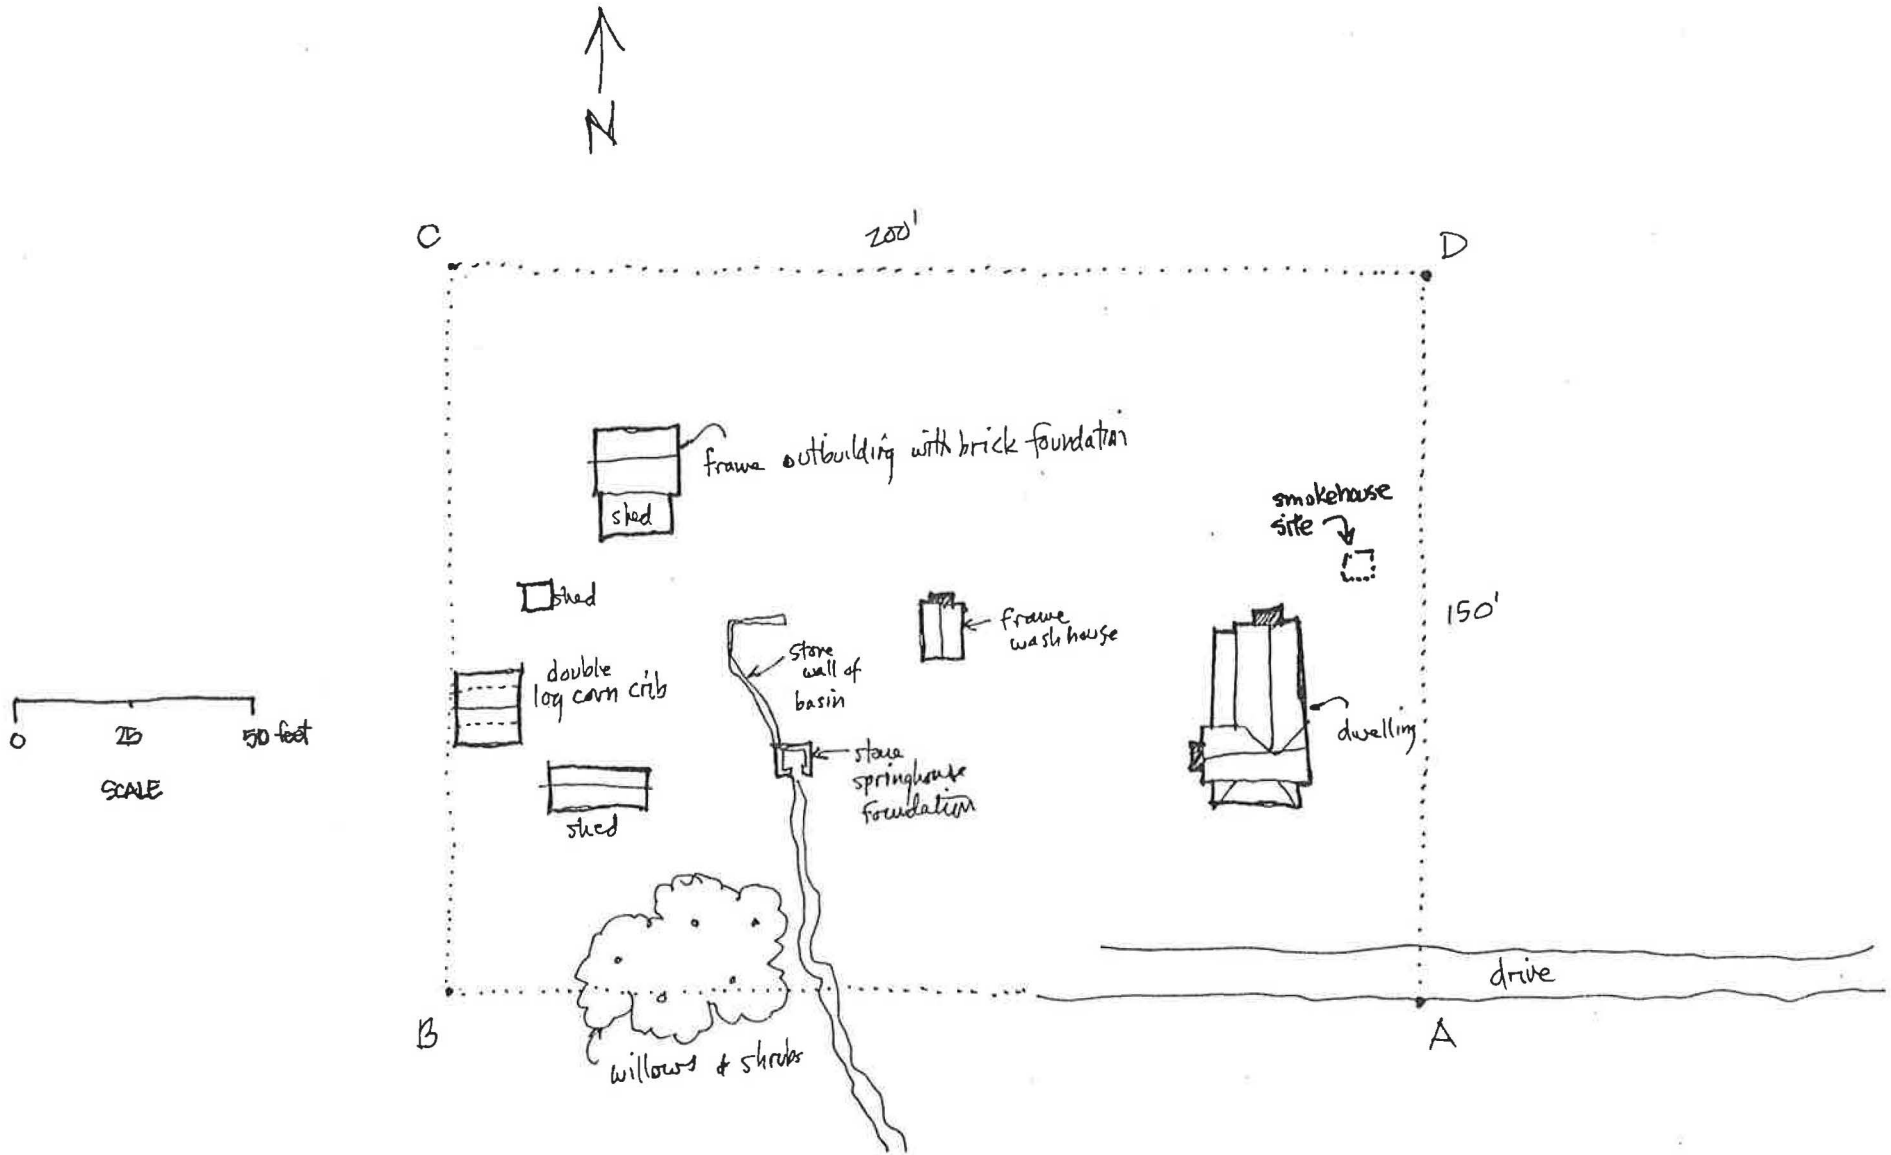 N
C
200'
D
frame outbuilding with brick foundation
shed
smokehouse
site
shed
150'
frame
wash house
stone
wall of
basin
double
log corn crib
dwelling
0
25
50 feet
SCALE
stone
springhouse
foundation
shed
drive
B
A
willows & shrubs